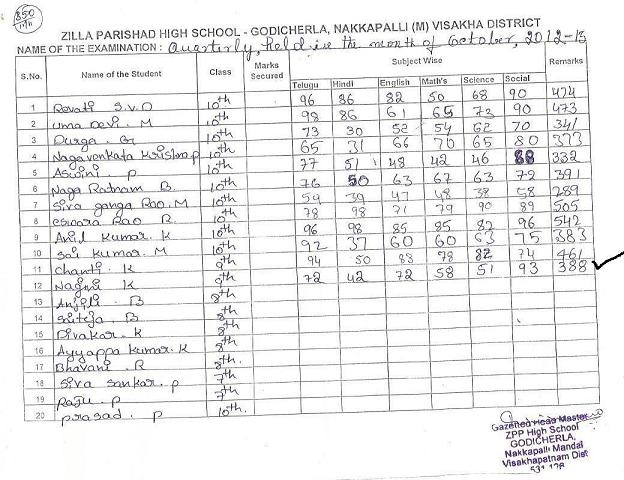 850
ZILLA PARISHAD HIGH SCHOOL - GODICHERLA, NAKKAPALLI (M) VISAKHA DISTRICT
NAME OF THE EXAMINATION : Quarterly, held in the month of October, 2012-13
S.No. Name of the Student Class Marks Secured Subject Wise Remarks
Telugu Hindi English Math's Science Social
1 Revati S.V.D 10th 96 86 82 50 68 90 474
2 Uma Devi. M 10th 98 86 61 65 73 90 473
3 Durga. Gr 10th 73 30 52 54 62 70 341
4 Nagavenkata Krishna P 10th 65 31 66 70 65 80 373
5 Aswini P 10th 77 51 48 42 46 68 332
6 Naga Ratnam B. 10th 76 50 63 67 63 72 391
7 Siva ganga Rao. M 10th 59 39 47 48 38 58 289
8 eswara Rao R. 10th 78 98 71 79 90 89 505
9 Anil Kumar. K 10th 96 98 85 85 82 96 542
10 Sai Kumar. M 10th 92 37 60 60 63 75 383
11 Chanti. K 9th 94 50 83 78 82 74 461
12 Nagini K 9th 72 42 72 58 51 93 388
13 Anjili. B 8th
14 Saiteja. B 8th
15 Divakar. K 8th
16 Ayyappa Kumar. K 8th
17 Bhavani. R 8th.
18 Siva Sankar. P 7th
19 Raju. P 7th
20 Prasad. P 10th.
Gazetted Head Master
ZPP High School
GODICHERLA,
Nakkapalli Mandal
Visakhapatnam Dist
531 126